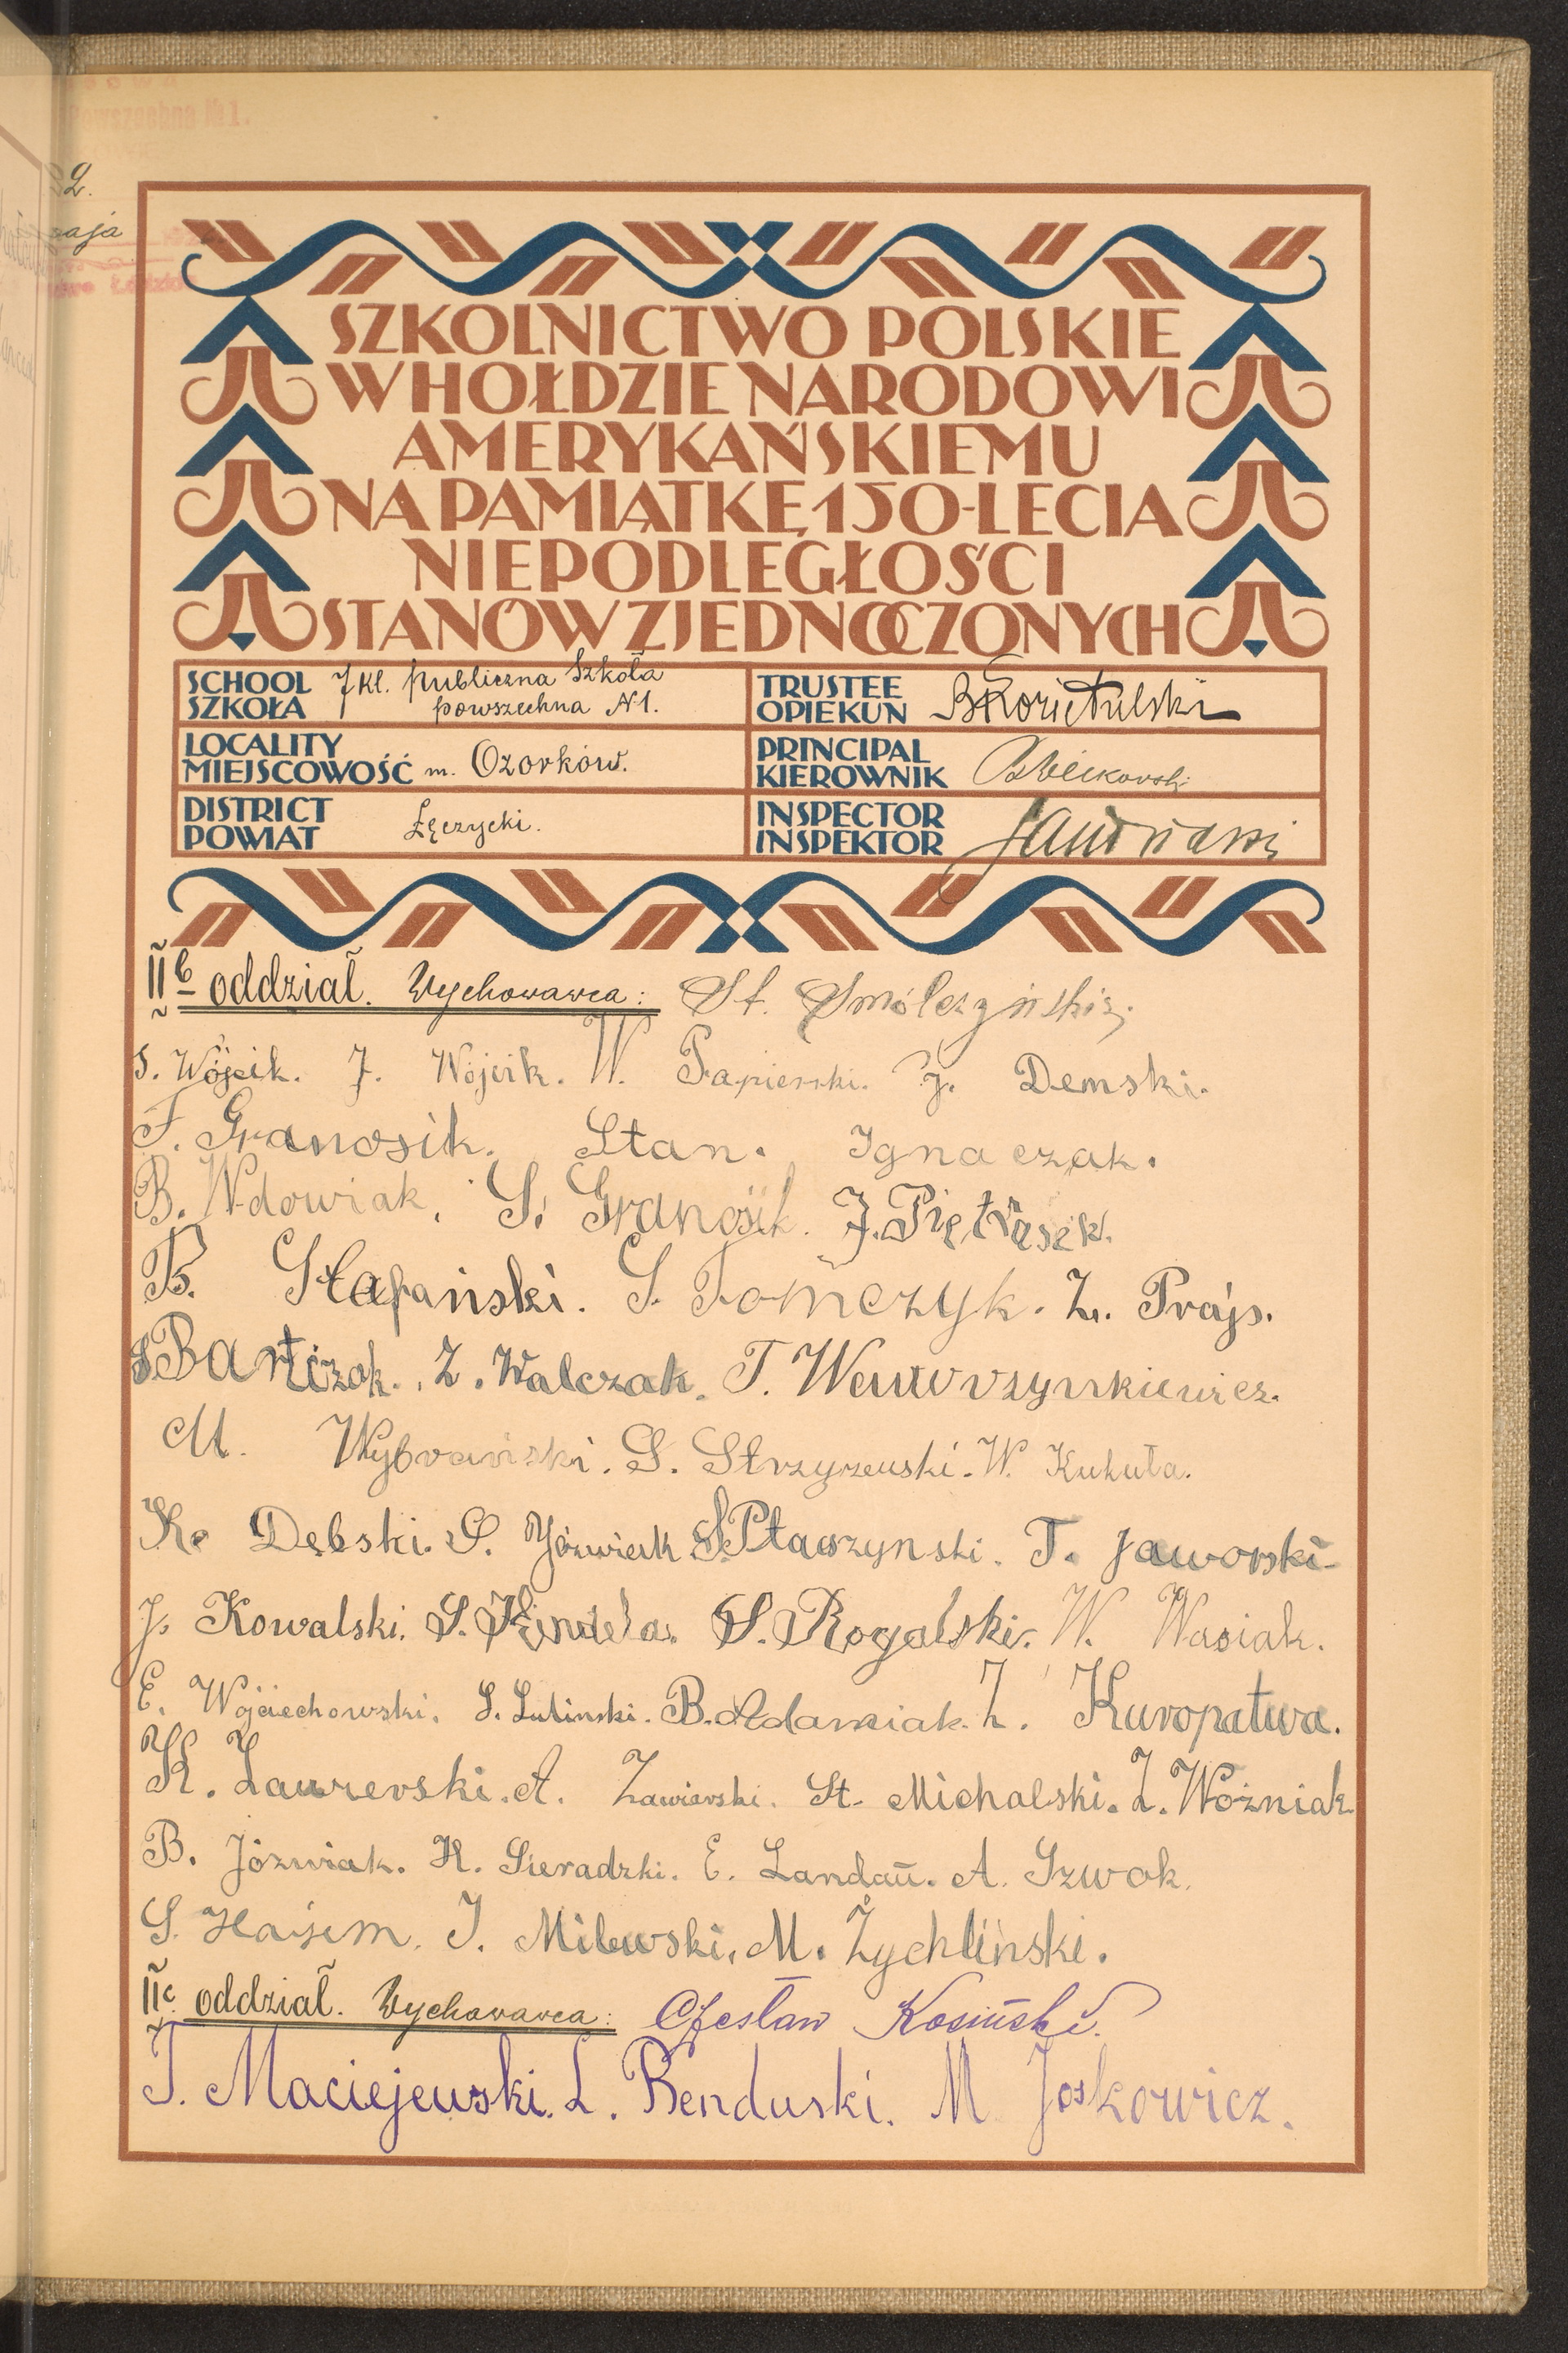 Powszechna № 1.
SZKOLNICTWO POLSKIE
W HOŁDZIE NARODOWI
AMERYKAŃSKIEMU
NA PAMIĄTKĘ 150-LECIA
NIEPODLEGŁOŚCI
STANÓW ZJEDNOCZONYCH
SCHOOL SZKOŁA 7 kl. publiczna Szkoła powszechna N1.
TRUSTEE OPIEKUN
LOCALITY MIEJSCOWOŚĆ m. Ozorków.
PRINCIPAL KIEROWNIK
DISTRICT POWIAT Łęczycki.
INSPECTOR INSPEKTOR
IIb oddział. Wychowawca: St. Smólczyński
S. Wójcik. J. Wójcik. W. Papierski. J. Demski.
F. Granosik. Stan. Ignaczak.
B. Wdowiak. S. Granosik. J. Piętrasik.
B. Stapański. S. Tomczyk. Z. Prajs.
S. Bartczak. Z. Walczak. T. Wawrzynkiewicz.
M. Wybrański. S. Strzyzewski. W. Kukuła.
K. Dębski. S. Jóźwiak S. Ptaszynski. T. Jaworski
J. Kowalski. S. Kendela. S. Rogalski. W. Wasiak.
E. Wojciechowski. S. Lulinski. B. Adamiak. Z. Kuropatwa.
K. A. Zawierski. St. Michalski. Z. Woźniak
B. Jóźwiak. H. Sieradzki. E. Landau. A. Szwok.
S. Hajem. J. Milewski. M. Żychliński.
IIc oddział. Wychowawca: Czesław Kosiński.
T. Maciejewski. L. Benduski. M Joskowicz.